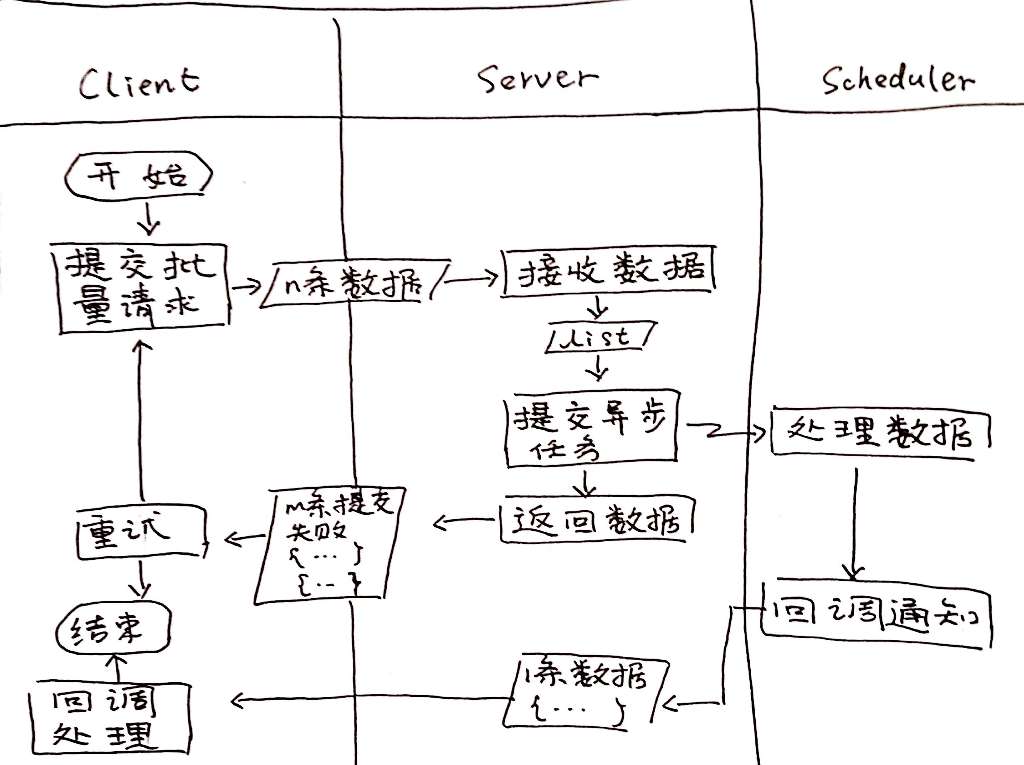 Client
Server
Scheduler
开始
提交批
量请求
n条数据
接收数据
list
提交异步
任务
处理数据
m条提交
失败
{ ... }
{ ... }
返回数据
重试
结束
回调通知
1条数据
{ ... }
回调
处理